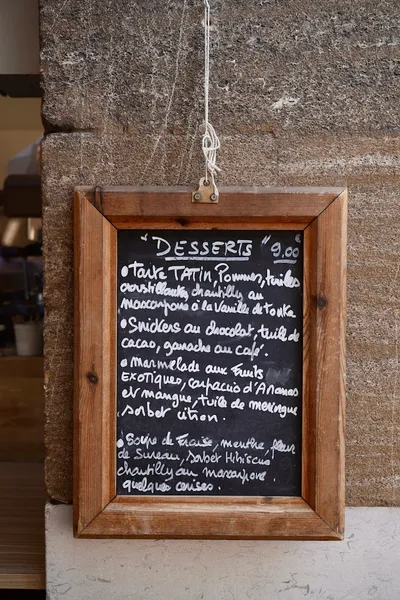 "DESSERTS" 9.00
• Tarte TATIN, Pommes, tuiles
croustillantes, chantilly au
mascarpone à la Vanille de Tonka
• Snickers au chocolat, tuile de
cacao, ganache au café.
• Marmelade aux Fruits
EXOTIQUES, carpaccio d'Ananas
et mangue, tuile de meringue
sorbet citron.
• Soupe de Fraise, menthe, fleur
de Sureau, sorbet Hibiscus
chantilly au mascarpone
quelques cerises.